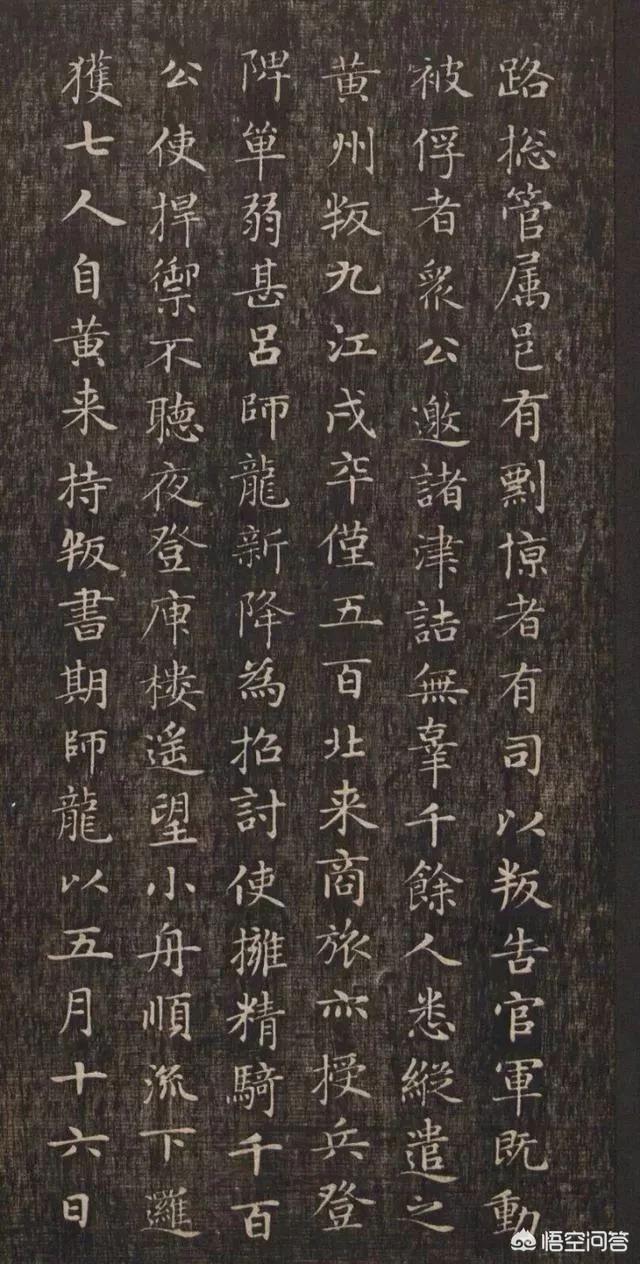 路捴管属邑有剽掠者有司以叛告官軍既動
被俘者眾公邀諸津詰無辜千餘人悉縱遣之
黄州叛九江戍卒僅五百北来商旅亦授兵登
陴単弱甚呂師龍新降為招討使擁精騎千百
公使捍禦不聽夜登庾樓遥望小舟順流下邏
獲七人自黄来持叛書期師龍以五月十六日
悟空问答